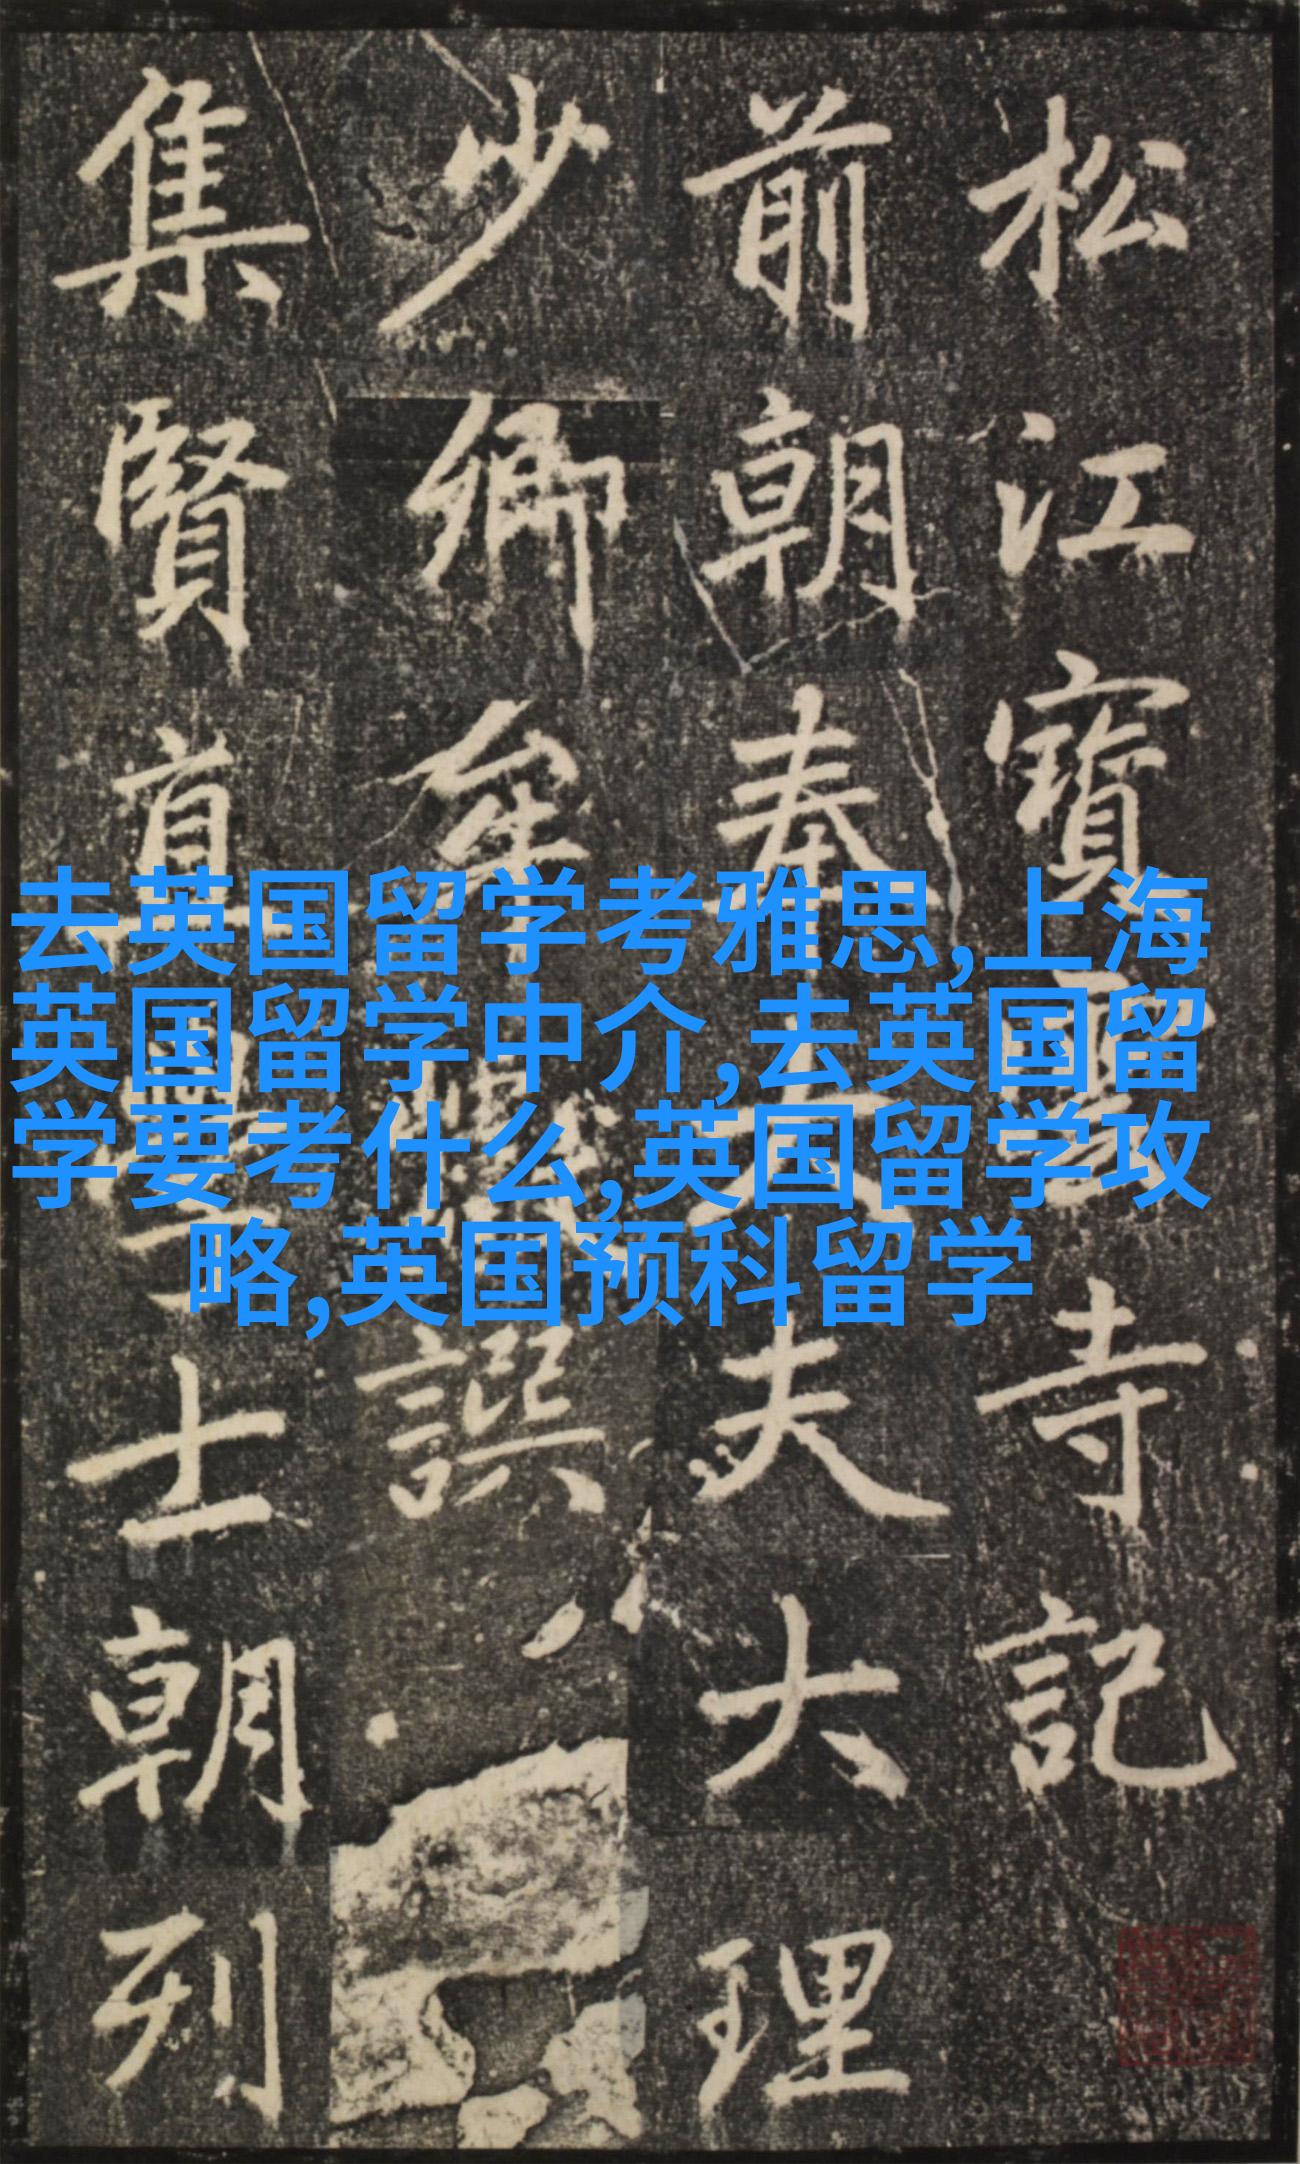 松江寶雲寺記
前朝奉大夫大理
少卿牟巘譔
集賢直學士朝列
去英国留学考雅思,上海
英国留学中介,去英国留
学要考什么,英国留学攻
略,英国预科留学